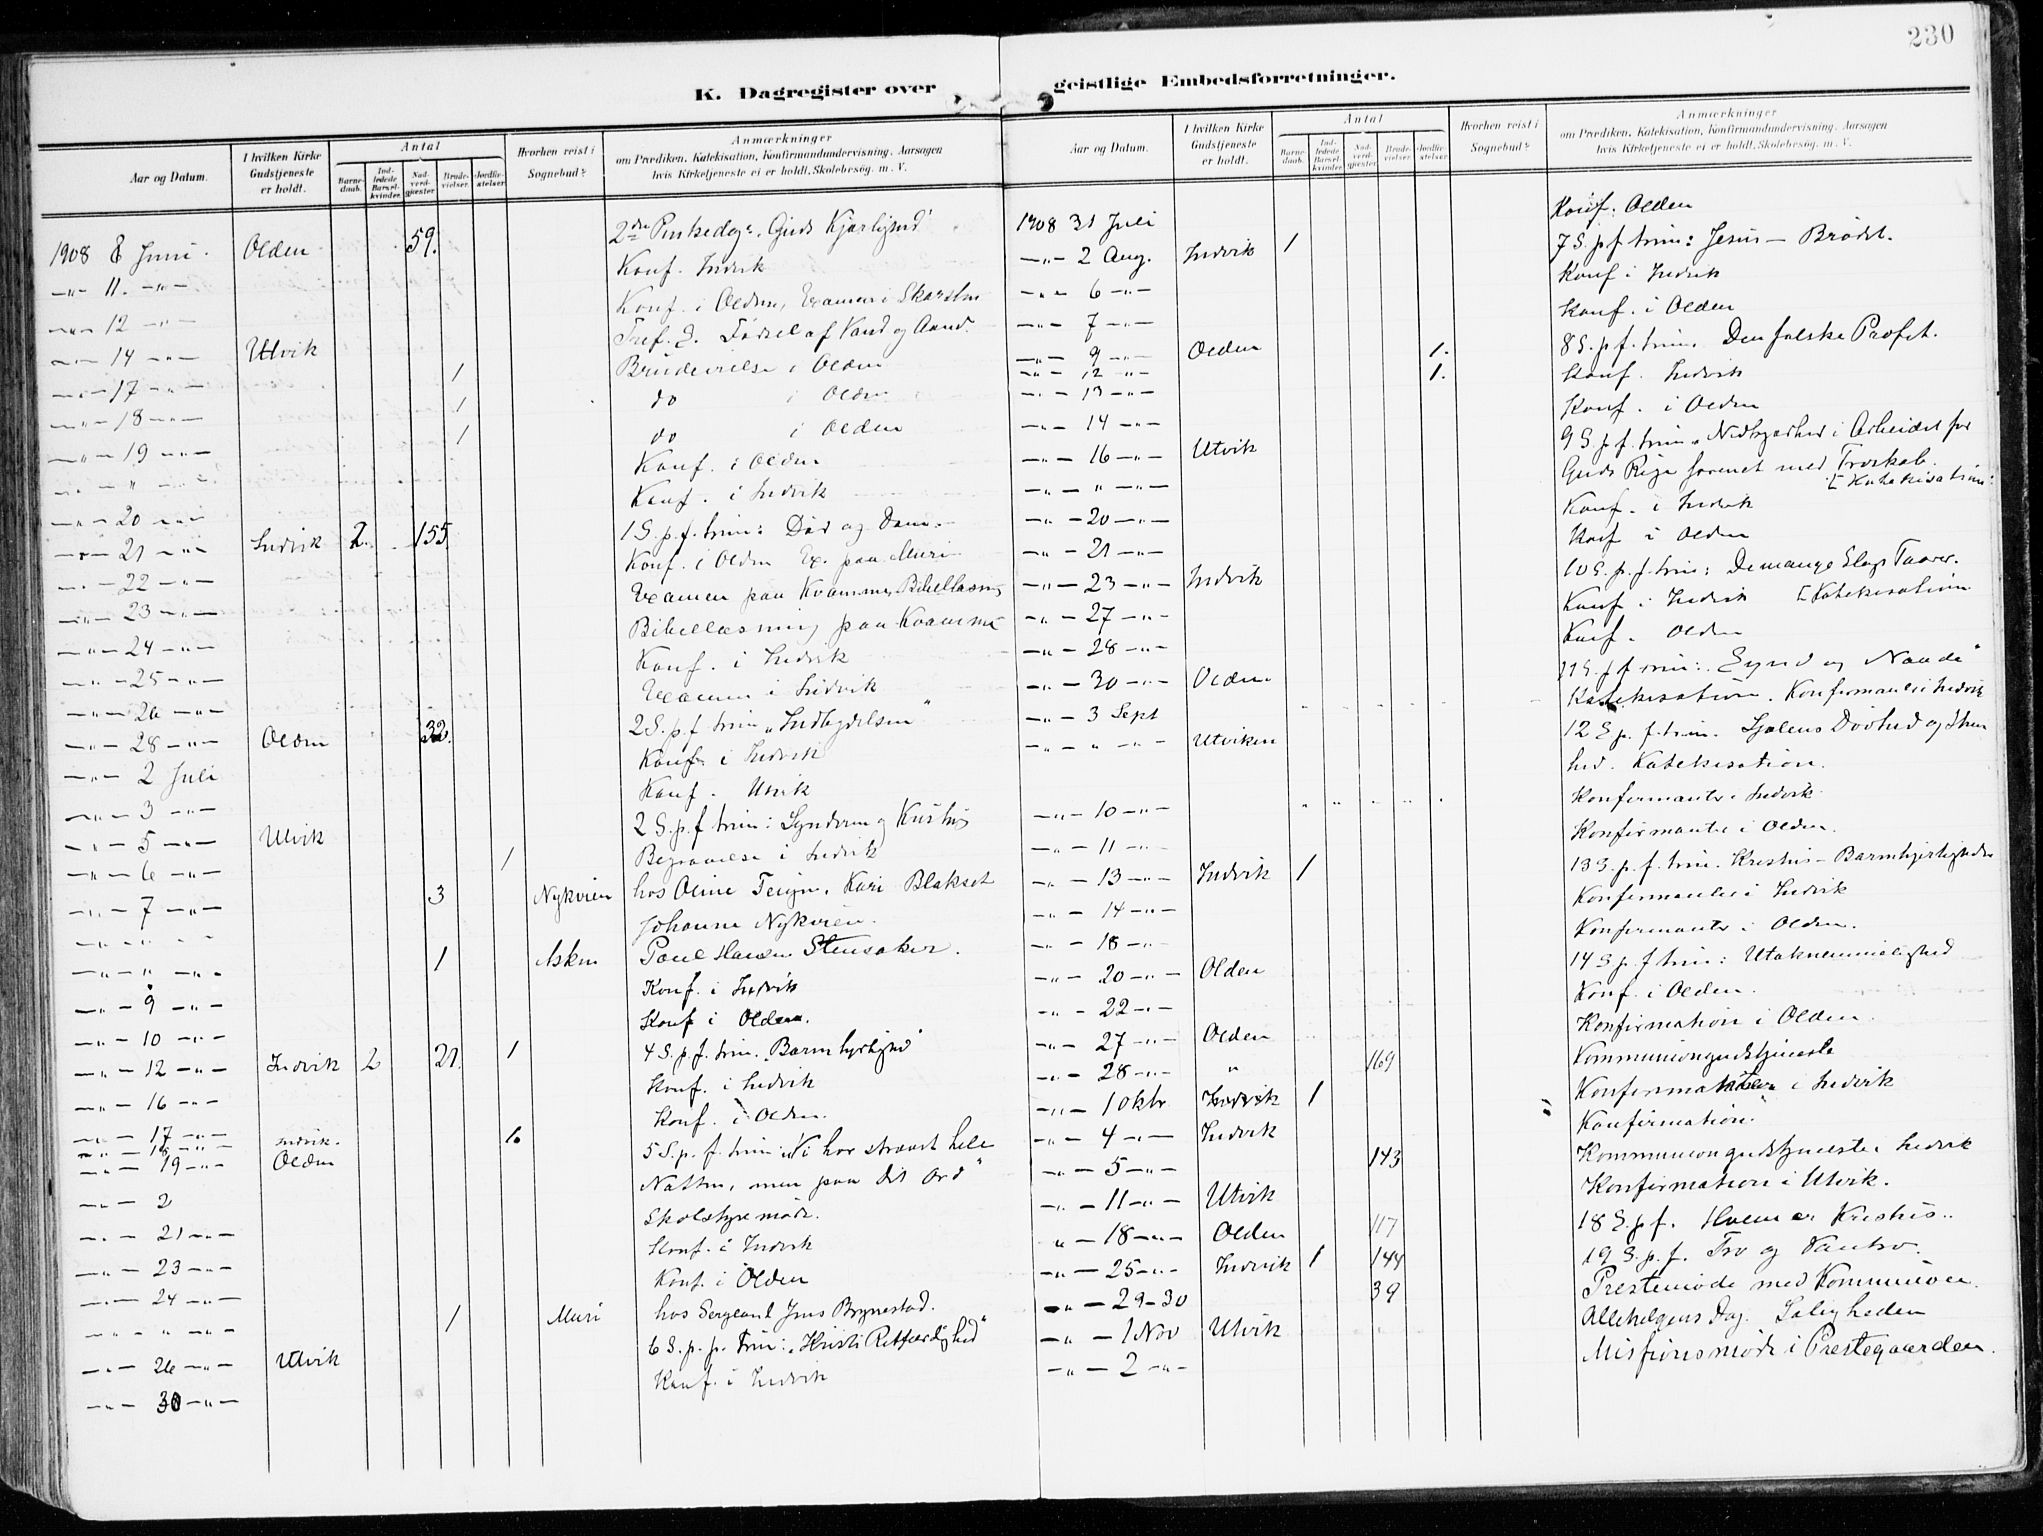 230
K. Dagregister over geistlige Embedsforretninger.
Aar og Datum. I hvilken Kirke Gudstjeneste er holdt. Antal Barnedaab. Indledede Barselkvinder. Nadverdgjæster. Brudevielser. Jordfæstelser. Hvorhen reist i Sognebud? Anmærkninger om Prædiken, Katekisation, Konfirmandundervisning, Aarsagen hvis Kirketjeneste ei er holdt, Skolebesøg, m. V.
1908 8 Juni Olden 59. 2den Pinkedag. Guds Kjærlighed
—"— 11. —"— Konf. Indvik
—"— 12 —"— Konf. i Olden, Examen i
—"— 14 —"— Utvik Tref. S. Fødsel af Vand og Aand.
—"— 17 —"— 1 Brudevielse i Olden
—"— 18 —"— 1 do i Olden
—"— 19 —"— 1 do i Olden
—"— " —"— Konf. i Olden
—"— 20 —"— Konf. i Indvik
—"— 21 —"— Indvik 2. 155 1 S. p. f. trin: Død og Dom.
—"— 22 —"— Konf. i Olden Ex. paa Muri
—"— 23 —"— Examen paa Kvamme, Bibellæsning
—"— 24 —"— Bibellæsning paa Kvamme
—"— 25 —"— Konf. i Indvik
—"— 26 —"— Examen i Indvik
—"— 28 —"— Olden 32. 2 S. p. f. trin „Indbydelsen"
—"— 2 Juli Konf. i Indvik
—"— 3 —"— Konf. Utvik
—"— 5 —"— Utvik 2 S. p. f. trin: Synderen og Kristus
—"— 6 —"— 1 Begravelse i Indvik
—"— 7 —"— 3 Nykvien hos Oline Teign, Kari Blakset
Johanne Nykvien.
—"— " —"— 1 Paul Hansen Stensaker.
—"— 9 —"— Konf. i Indvik
—"— 10 —"— Konf i Olden.
—"— 12 —"— Indvik 2 21. 1 4 S. p. f. trin. „Barmhjertighed"
—"— 16 —"— Konf. i Indvik
—"— 17 —"— Konf. i Olden.
—"— 18 —"— Indvik. 1.
—"— 19 —"— Olden 5 S. p. f. trin: „Vi har strævet hele
—"— 2 Natten, men paa dit Ord"
—"— 21 —"— Skolstyremøde.
—"— 23 —"— Konf. i Indvik
—"— 24 —"— Konf. i Olden
—"— " —"— 1 Muri hos Sersjant Jens Brynestad.
—"— 26 —"— Utvik 6 S. p. f. Trin: „Kristi Retfærdighed"
—"— 30 —"— Konf. i Indvik
Aar og Datum. I hvilken Kirke Gudstjeneste er holdt. Antal Barnedaab. Indledede Barselkvinder. Nadverdgjæster. Brudevielser. Jordfæstelser. Hvorhen reist i Sognebud? Anmærkninger om Prædiken, Katekisation, Konfirmandundervisning, Aarsagen hvis Kirketjeneste ei er holdt, Skolebesøg, m. V.
1908 31 Juli Konf. Olden
—"— 2 Aug. Indvik 1 7 S. p. f. trin: Jesus — Brødet.
—"— 6 —"— Konf i Indvik
—"— 7 —"— Konf. i Olden
—"— 9 —"— Olden 1. 8 S. p. f. trin. Den falske Profet.
—"— 12 —"— 1.
—"— 13 —"— Konf. Indvik
—"— 14 —"— Konf. i Olden
—"— 16 —"— Utvik 9 S. p. f. trin. Nidkjærhed i Arbeidet for
—"— " —"— Guds Rige forenet med Troskab. [Katekisation:
—"— 20 —"— Konf. i Indvik
—"— 21 —"— Konf i Olden
—"— 23 —"— Indvik 10 S. p. f. trin: De mange Slags Taarer.
—"— 27 —"— Konf. i Indvik [Katekisation
—"— 28 —"— Konf. Olden
—"— 30 —"— Olden 11 S. p. f. trin: „Synd og Naade"
—"— 3 Sept Katekisation. Konfirmanter i Indvik
—"— " —"— Utviken 12 S p. f. trin. Sjælens Døvhed og Stum
hed. Katekisation.
—"— 10 —"— Konfirmanter i Indvik
—"— 11 —"— Konfirmanter i Olden.
—"— 13 —"— Indvik 1 13 S. p. f. trin. Kristus — Barmhjertigheden
—"— 14 —"— Konfirmanter i Indvik
—"— 18 —"— Konfirmanter i Olden.
—"— 20 —"— Olden 14 S. p. f. trin: Utaknemmelighed
—"— 22 —"— Konf. i Olden.
—"— 27 —"— Olden Konfirmation i Olden.
—"— 28 —"— " 169 Kommuniongudstjeneste
—"— 1 Oktbr Indvik 1 i Indvik
—"— 4 —"— Indvik Konfirmation.
—"— 5 —"— 143 Kommuniongudstjeneste i Indvik
—"— 11 —"— Utvik Konfirmation i Utvik.
" — 18 —"— Olden 117 18 S. p. f. Hvem er Kristus..
—"— 25 —"— Indvik 1 144 19 S. p. f. Tro og Vantro.
—"— 29-30 39 Prestemøde med Kommunion.
—"— 1 Nov Utvik Allehelgens Dag. Saligheden
—"— 2 —"— Missionsmøde i Prestegaarden.